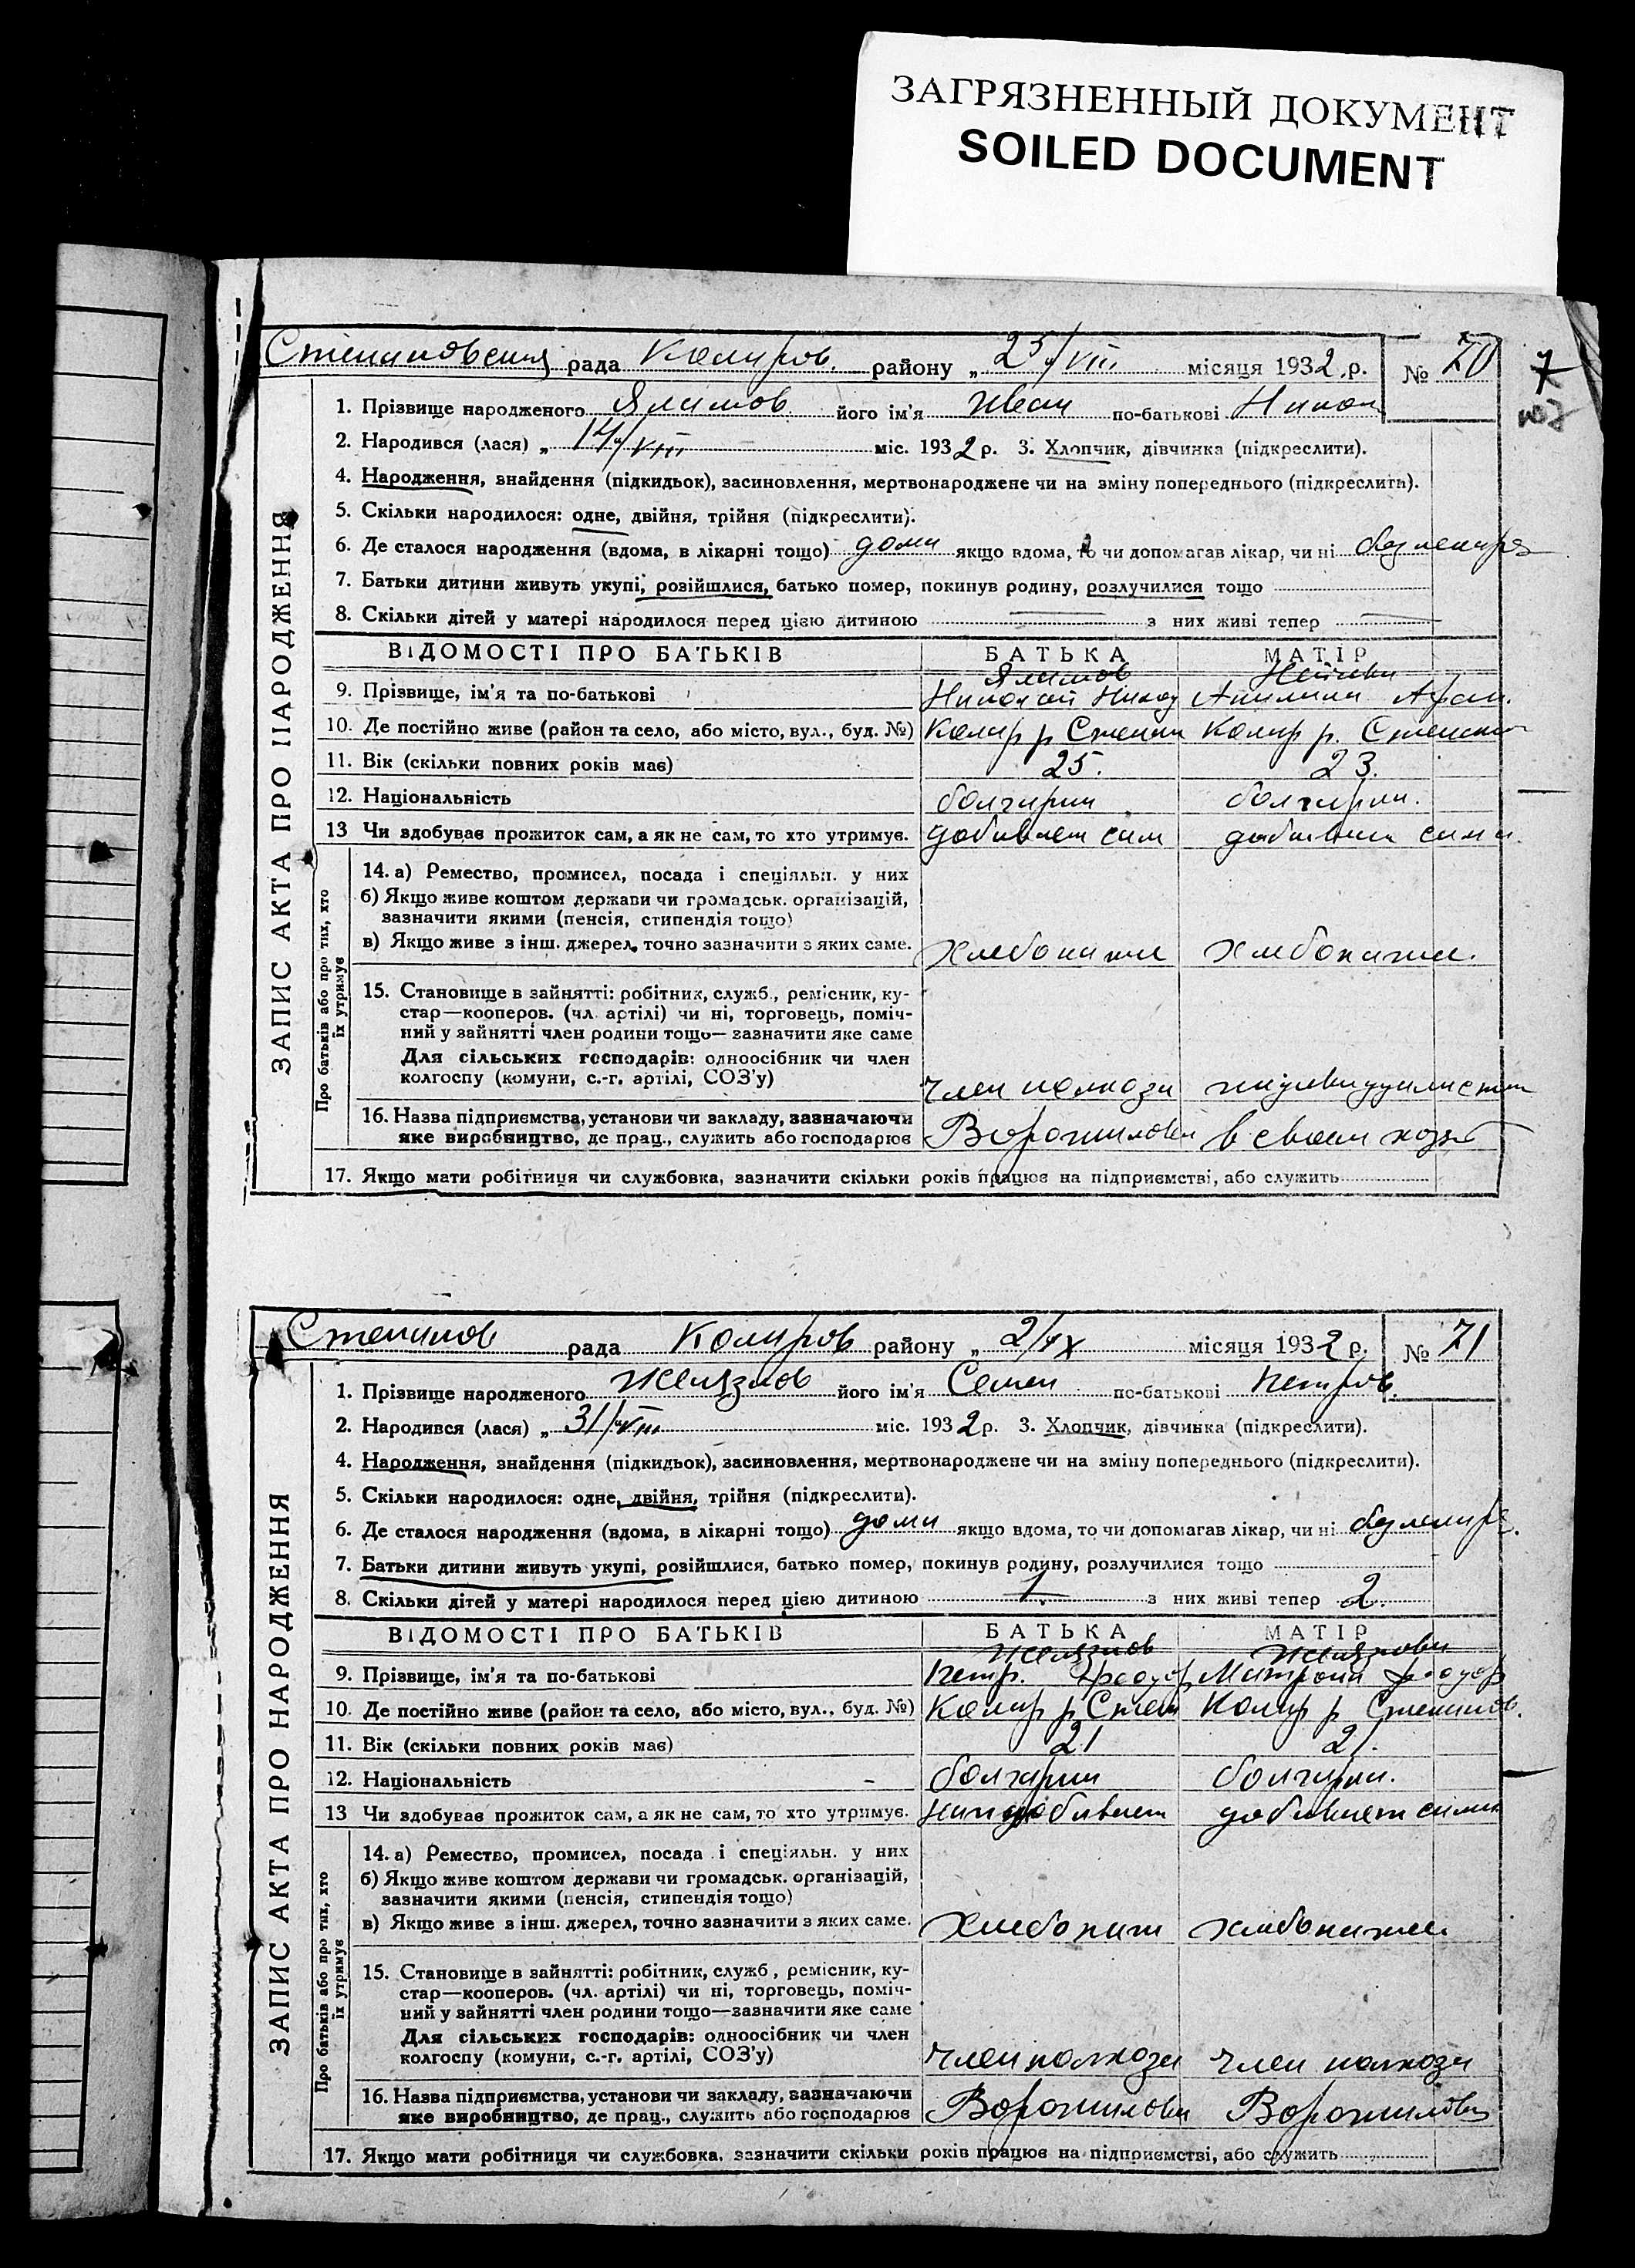 ЗАГРЯЗНЕННЫЙ ДОКУМЕНТ
SOILED DOCUMENT
ЗАПИС АКТА ПРО НАРОДЖЕННЯ
рада району „ 25/VIII місяця 1932 р. № 70
7
1. Прізвище народженого Ялимов його ім'я Иван по-батькові Никол
2. Народився (лася) „ 14/VIII міс. 1932 р. 3. Хлопчик, дівчинка (підкреслити).
4. Народження, знайдення (підкидьок), засиновлення, мертвонароджене чи на зміну попереднього (підкреслить).
5. Скільки народилося: одне, двійня, трійня (підкреслити).
6. Де сталося народження (вдома, в лікарні тощо) дома якщо вдома, то чи допомагав лікар, чи ні без лекаря
7. Батьки дитини живуть укупі, розійшлися, батько помер, покинув родину, розлучилися тощо
8. Скільки дітей у матері народилося перед цією дитиною — з них живі тепер —
ВІДОМОСТІ ПРО БАТЬКІВ БАТЬКА МАТІР
9. Прізвище, ім'я та по-батькові Ялимов Николай
10. Де постійно живе (район та село, або місто, вул., буд. №)
11. Вік (скільки повних років має) 25. 23.
12. Національність болгарин болгарка.
13 Чи здобуває прожиток сам, а як не сам, то хто утримує. добывает сам добывает сама.
Про батьків або про тих, хто їх утримує
14. а) Ремество, промисел, посада і спеціяльн. у них
б) Якщо живе коштом держави чи громадськ. організацій,
зазначити якими (пенсія, стипендія тощо)
в) Якщо живе з інш. джерел, точно зазначити з яких саме.
15. Становище в зайнятті: робітник, служб., ремісник, ку-
стар—кооперов. (чл. артілі) чи ні, торговець, поміч-
ний у зайнятті член родини тощо— зазначити яке саме
Для сільських господарів: одноосібник чи член
колгоспу (комуни, с.-г. артілі, СОЗ'у) член колхоза
16. Назва підприємства, установи чи закладу, зазначаючи
яке виробництво, де прац., служить або господарює Ворошилова в своем
17. Якщо мати робітниця чи службовка, зазначити скільки років працює на підприємстві, або служить
ЗАПИС АКТА ПРО НАРОДЖЕННЯ
Степанов рада району „ 2/IX місяця 1932 р. № 71
1. Прізвище народженого Желязков його ім'я Семен по-батькові Петров.
2. Народився (лася) „ 31/VIII міс. 1932 р. 3. Хлопчик, дівчинка (підкреслити).
4. Народження, знайдення (підкидьок), засиновлення, мертвонароджене чи на зміну попереднього (підкреслити).
5. Скільки народилося: одне, двійня, трійня (підкреслити).
6. Де сталося народження (вдома, в лікарні тощо) дома якщо вдома, то чи допомагав лікар, чи ні без лекаря.
7. Батьки дитини живуть укупі, розійшлися, батько помер, покинув родину, розлучилися тощо
8. Скільки дітей у матері народилося перед цією дитиною 1. з них живі тепер 2.
ВІДОМОСТІ ПРО БАТЬКІВ БАТЬКА МАТІР
9. Прізвище, ім'я та по-батькові Желязков Петр. Феодор Желязкова Матрона Феодор
10. Де постійно живе (район та село, або місто, вул., буд. №)
11. Вік (скільки повних років має) 21 21.
12. Національність болгарин болгарка.
13 Чи здобуває прожиток сам, а як не сам, то хто утримує. добывает добывает сама
Про батьків або про тих, хто їх утримує
14. а) Ремество, промисел, посада і спеціяльн. у них
б) Якщо живе коштом держави чи громадськ. організацій,
зазначити якими (пенсія, стипендія тощо)
в) Якщо живе з інш. джерел, точно зазначити з яких саме.
15. Становище в зайнятті: робітник, служб., ремісник, ку-
стар—кооперов. (чл. артілі) чи ні, торговець, поміч-
ний у зайнятті член родини тощо—зазначити яке саме
Для сільських господарів: одноосібник чи член
колгоспу (комуни, с.-г. артілі, СОЗ'у) член колхоза член колхоза
16. Назва підприємства, установи чи закладу, зазначаючи
яке виробництво, де прац., служить або господарює Ворошилова Ворошилова
17. Якщо мати робітниця чи службовка, зазначити скільки років працює на підприємстві, або служить